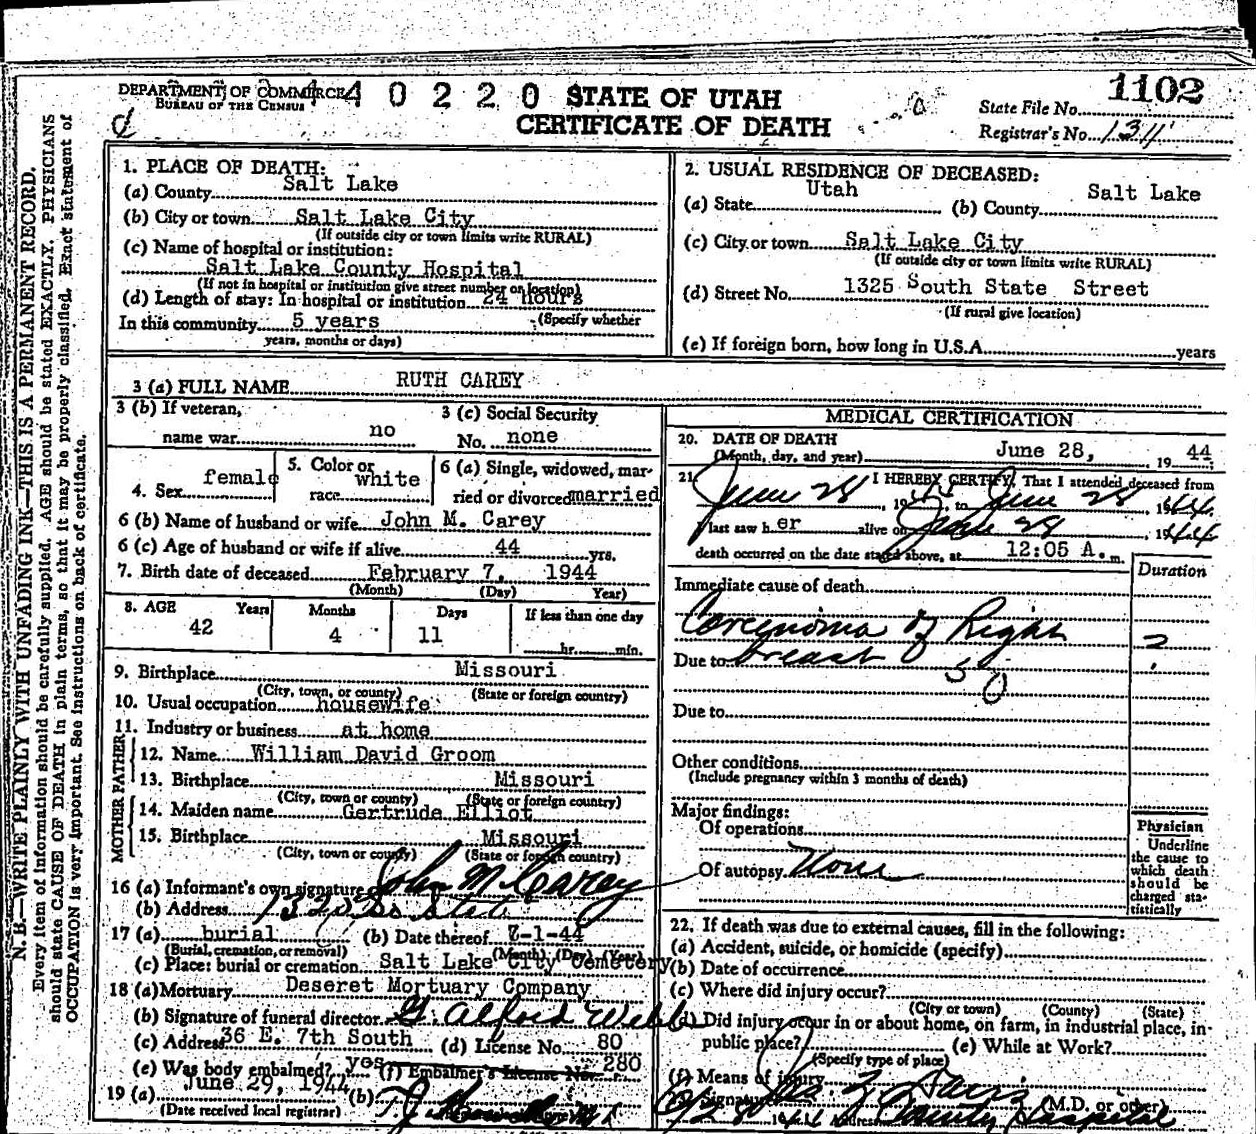 DEPARTMENT OF COMMERCE
BUREAU OF THE CENSUS
4 4 0 2 2 0
STATE OF UTAH
CERTIFICATE OF DEATH
State File No. 1102
Registrar's No. 1311
N. B.—WRITE PLAINLY WITH UNFADING INK—THIS IS A PERMANENT RECORD.
Every item of information should be carefully supplied. AGE should be stated EXACTLY. PHYSICIANS
should state CAUSE OF DEATH in plain terms, so that it may be properly classified. Exact statement of
OCCUPATION is very important. See instructions on back of certificate.
1. PLACE OF DEATH:
(a) County Salt Lake
(b) City or town Salt Lake City
(If outside city or town limits write RURAL)
(c) Name of hospital or institution:
Salt Lake County Hospital
(If not in hospital or institution give street number or location)
(d) Length of stay: In hospital or institution 24 hours
(Specify whether
In this community 5 years
years, months or days)
2. USUAL RESIDENCE OF DECEASED:
(a) State Utah (b) County Salt Lake
(c) City or town Salt Lake City
(If outside city or town limits write RURAL)
(d) Street No. 1325 South State Street
(If rural give location)
(e) If foreign born, how long in U.S.A. years
3 (a) FULL NAME RUTH CAREY
3 (b) If veteran, name war no
3 (c) Social Security No. none
4. Sex female
5. Color or race white
6 (a) Single, widowed, married or divorced married
6 (b) Name of husband or wife John M. Carey
6 (c) Age of husband or wife if alive 44 yrs.
7. Birth date of deceased February 7, 1944
(Month) (Day) Year)
8. AGE Years Months Days If less than one day
42 4 11 hr. min.
9. Birthplace Missouri
(City, town, or county) (State or foreign country)
10. Usual occupation housewife
11. Industry or business at home
FATHER
12. Name William David Groom
13. Birthplace Missouri
(City, town or county) (State or foreign country)
MOTHER
14. Maiden name Gertrude Elliot
15. Birthplace Missouri
(City, town or county) (State or foreign country)
16 (a) Informant's own signature John M Carey
(b) Address 1325 So State
17 (a) burial (b) Date thereof 7-1-44
(Burial, cremation, or removal) (Month) (Day) (Year)
(c) Place: burial or cremation Salt Lake City Cemetery
18 (a) Mortuary Deseret Mortuary Company
(b) Signature of funeral director G. Alford Webb
(c) Address 36 E. 7th South (d) License No. 80
(e) Was body embalmed? yes (f) Embalmer's License No. 280
19 (a) June 29, 1944 (b)
(Date received local registrar)
MEDICAL CERTIFICATION
20. DATE OF DEATH
(Month, day, and year) June 28, 19 44
21. I HEREBY CERTIFY, That I attended deceased from
June 28, 1944 to June 28, 1944
last saw her alive on June 28, 1944
death occurred on the date stated above, at 12:05 A. m.
Duration
Immediate cause of death
Carcinoma of Right
Due to breast
2
50
Due to
Other conditions
(Include pregnancy within 3 months of death)
Major findings:
Of operations
Of autopsy None
Physician
Underline
the cause to
which death
should be
charged sta-
tistically
22. If death was due to external causes, fill in the following:
(a) Accident, suicide, or homicide (specify)
(b) Date of occurrence
(c) Where did injury occur?
(City or town) (County) (State)
(d) Did injury occur in or about home, on farm, in industrial place, in
public place? (e) While at Work?
(Specify type of place)
(f) Means of injury
Signature (M.D. or other)
Address County Hospital